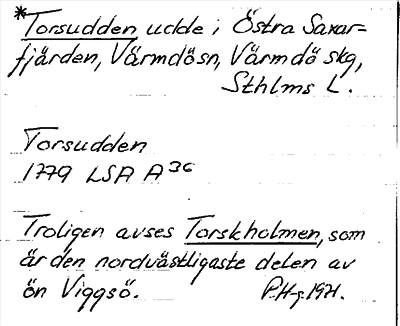 *Torsudden, udde i Östra Saxar=
fjärden, Värmdö sn, Värmdö skg,
Sthlms L.
Torsudden
1779 LSA A36
Troligen avses Torskholmen, som
är den nordvästligaste delen av
ön Viggsö. P.H-g. 1971.